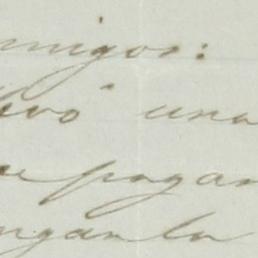 migos:
vó una
e pagan
ngan la